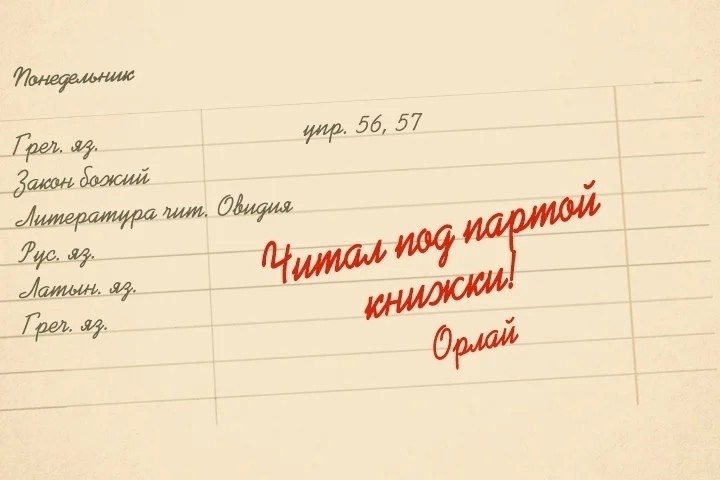 Понедельник
Греч. яз. упр. 56, 57
Закон божий
Литература чит. Овидия
Рус. яз.
Латын. яз.
Греч. яз.
Читал под партой
книжки!
Орлай